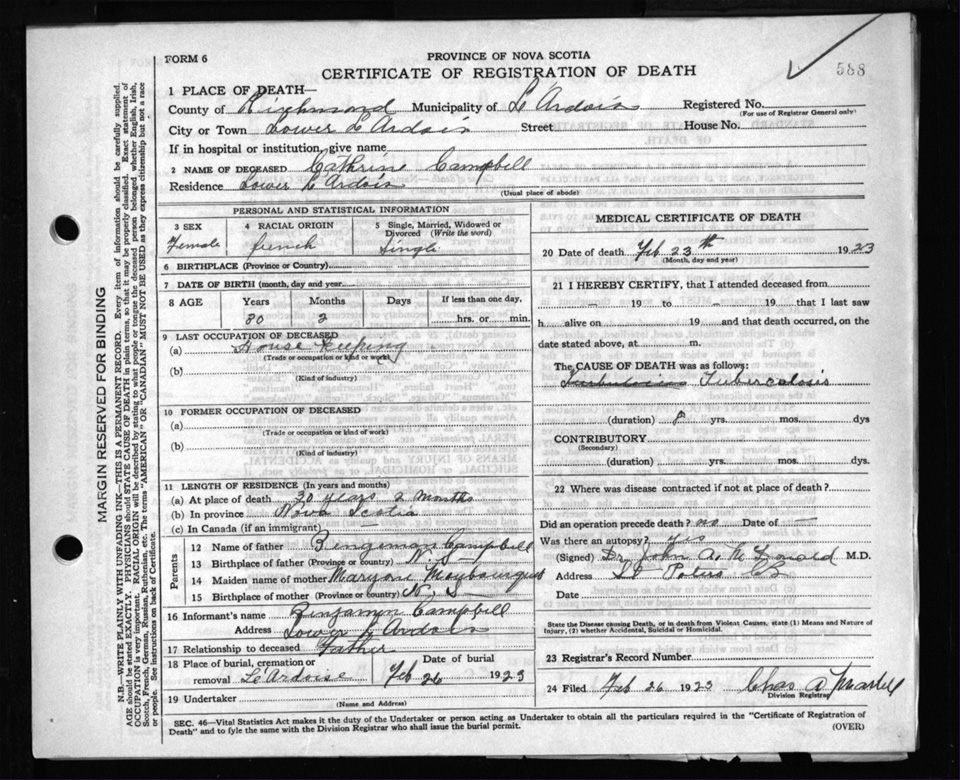 FORM 6
PROVINCE OF NOVA SCOTIA
CERTIFICATE OF REGISTRATION OF DEATH
588
1 PLACE OF DEATH—
County of Richmond Municipality of L'Ardois Registered No.
(For use of Registrar General only)
City or Town Lower L'Ardois Street House No.
If in hospital or institution, give name
2 NAME OF DECEASED Cathrine Campbell
Residence Lower L'Ardois
(Usual place of abode)
PERSONAL AND STATISTICAL INFORMATION
3 SEX 4 RACIAL ORIGIN 5 Single, Married, Widowed or Divorced (Write the word)
Female french Single
6 BIRTHPLACE (Province or Country)
7 DATE OF BIRTH (month, day and year)
8 AGE Years Months Days If less than one day,
30 2 hrs. or min.
9 LAST OCCUPATION OF DECEASED
(a) House Keeping
(Trade or occupation or kind or work)
(b)
(Kind of industry)
10 FORMER OCCUPATION OF DECEASED
(a)
(Trade or occupation or kind of work)
(b)
(Kind of industry)
11 LENGTH OF RESIDENCE (In years and months)
(a) At place of death 30 years 2 months
(b) In province Nova Scotia
(c) In Canada (if an immigrant) —
Parents
12 Name of father Bengiman Campbell
13 Birthplace of father (Province or country) N, S
14 Maiden name of mother
15 Birthplace of mother (Province or country) N, S —
16 Informant's name Benjamin Campbell
Address Lower L'Ardois
17 Relationship to deceased Father
18 Place of burial, cremation or removal L'Ardoise Date of burial Feb 26 1923
19 Undertaker
(Name and Address)
MEDICAL CERTIFICATE OF DEATH
20 Date of death Feb 23th 1923
(Month, day and year)
21 I HEREBY CERTIFY, that I attended deceased from
— 19 to — 19 that I last saw
h alive on 19 and that death occurred, on
date stated above, at m.
The CAUSE OF DEATH was as follows:
Tuberculosis
(duration) yrs. mos. dys
CONTRIBUTORY
(Secondary)
(duration) yrs. mos. dys.
22 Where was disease contracted if not at place of death?
Did an operation precede death? no Date of —
Was there an autopsy? yes
(Signed) Dr. John A. McDonald M.D.
Address St Peters CB
Date
State the Disease causing Death, or in death from Violent Causes, state (1) Means and Nature of
Injury, (2) whether Accidental, Suicidal or Homicidal.
23 Registrar's Record Number
24 Filed Feb 26 1923 Chas A Martell
Division Registrar
SEC. 46—Vital Statistics Act makes it the duty of the Undertaker or person acting as Undertaker to obtain all the particulars required in the "Certificate of Registration of
Death" and to fyle the same with the Division Registrar who shall issue the burial permit.
(OVER)
MARGIN RESERVED FOR BINDING
N.B.—WRITE PLAINLY WITH UNFADING INK—THIS IS A PERMANENT RECORD. Every item of information should be carefully supplied.
AGE should be stated EXACTLY. PHYSICIANS should STATE CAUSE OF DEATH in plain terms, so that it may be properly classified. Exact statement of
OCCUPATION is very important. RACIAL ORIGIN will be described by stating to what people or tongue the deceased person belonged whether English, Irish,
Scotch, French, German, Russian, Ruthenian, etc. The terms "AMERICAN" OR "CANADIAN" MUST NOT BE USED as they express citizenship but not a race
or people. See instructions on back of Certificate.